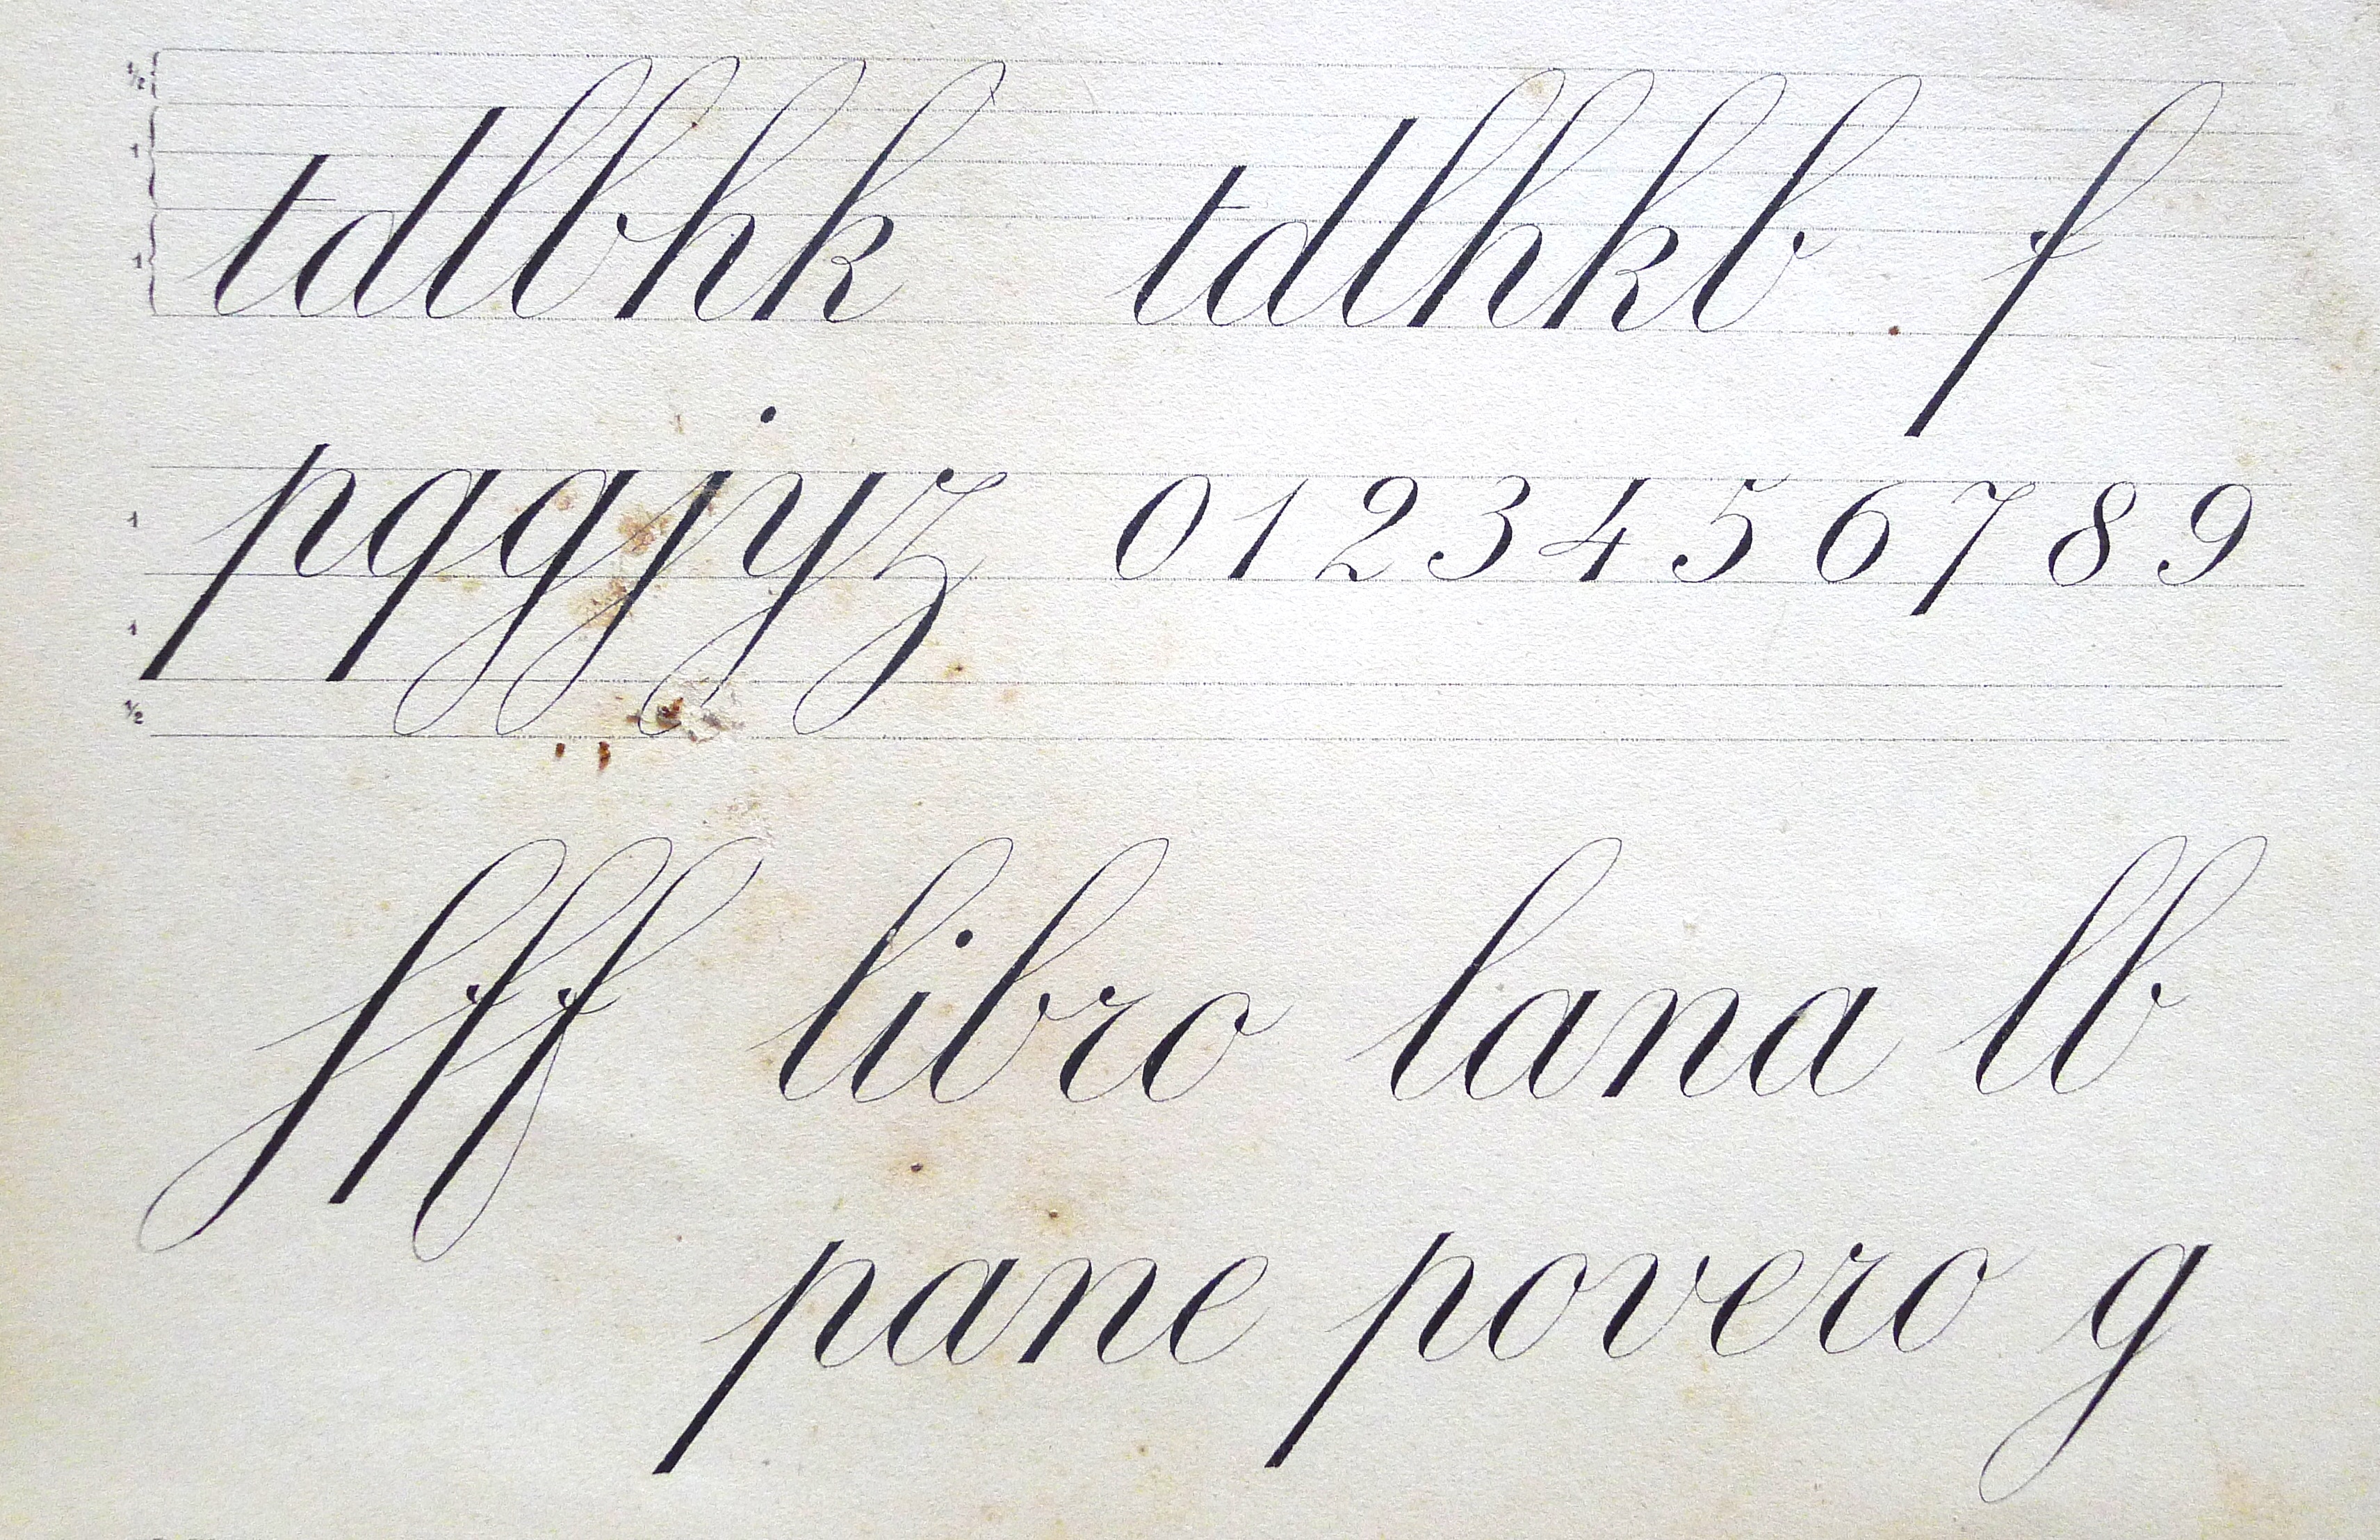 ½ 1 1 tdlbhk tdlhkb f
1 1 ½ pqgjyz 0 1 2 3 4 5 6 7 8 9
fff libro lana lb
pane povero g